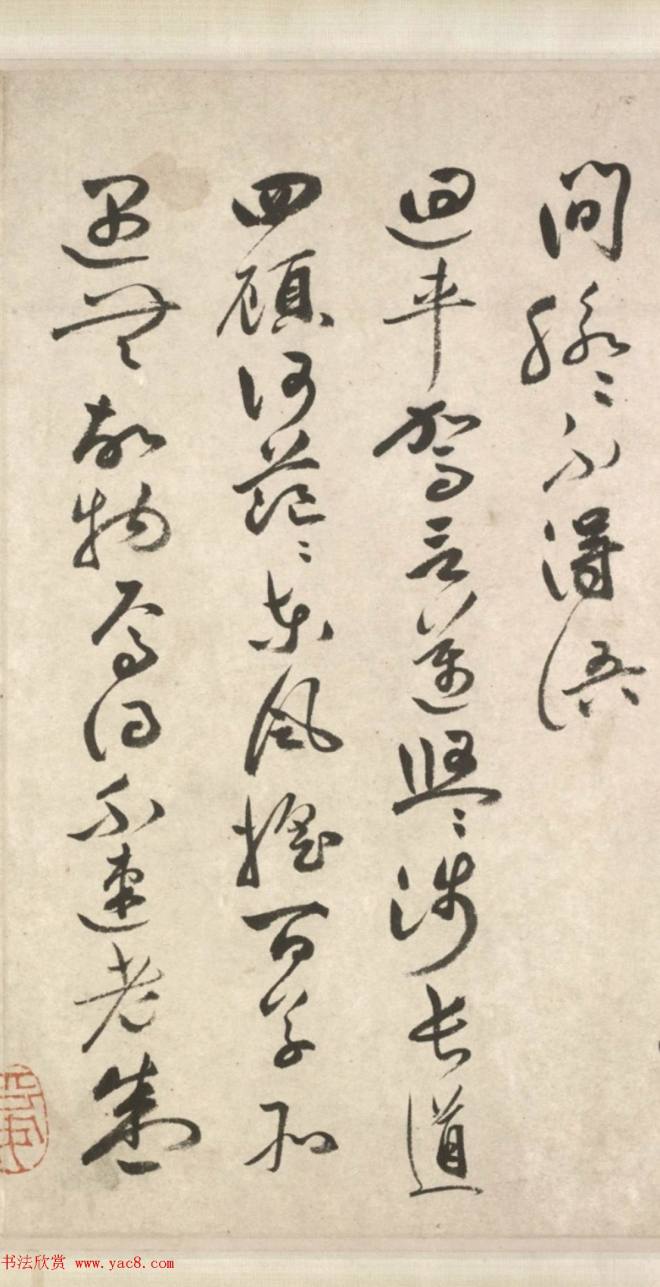 間脉〻不得語
迴車駕言邁悠〻涉長道
四顧何茫〻東風搖百草所
遇無故物焉得不速老盛
书法欣赏 www.yac8.com